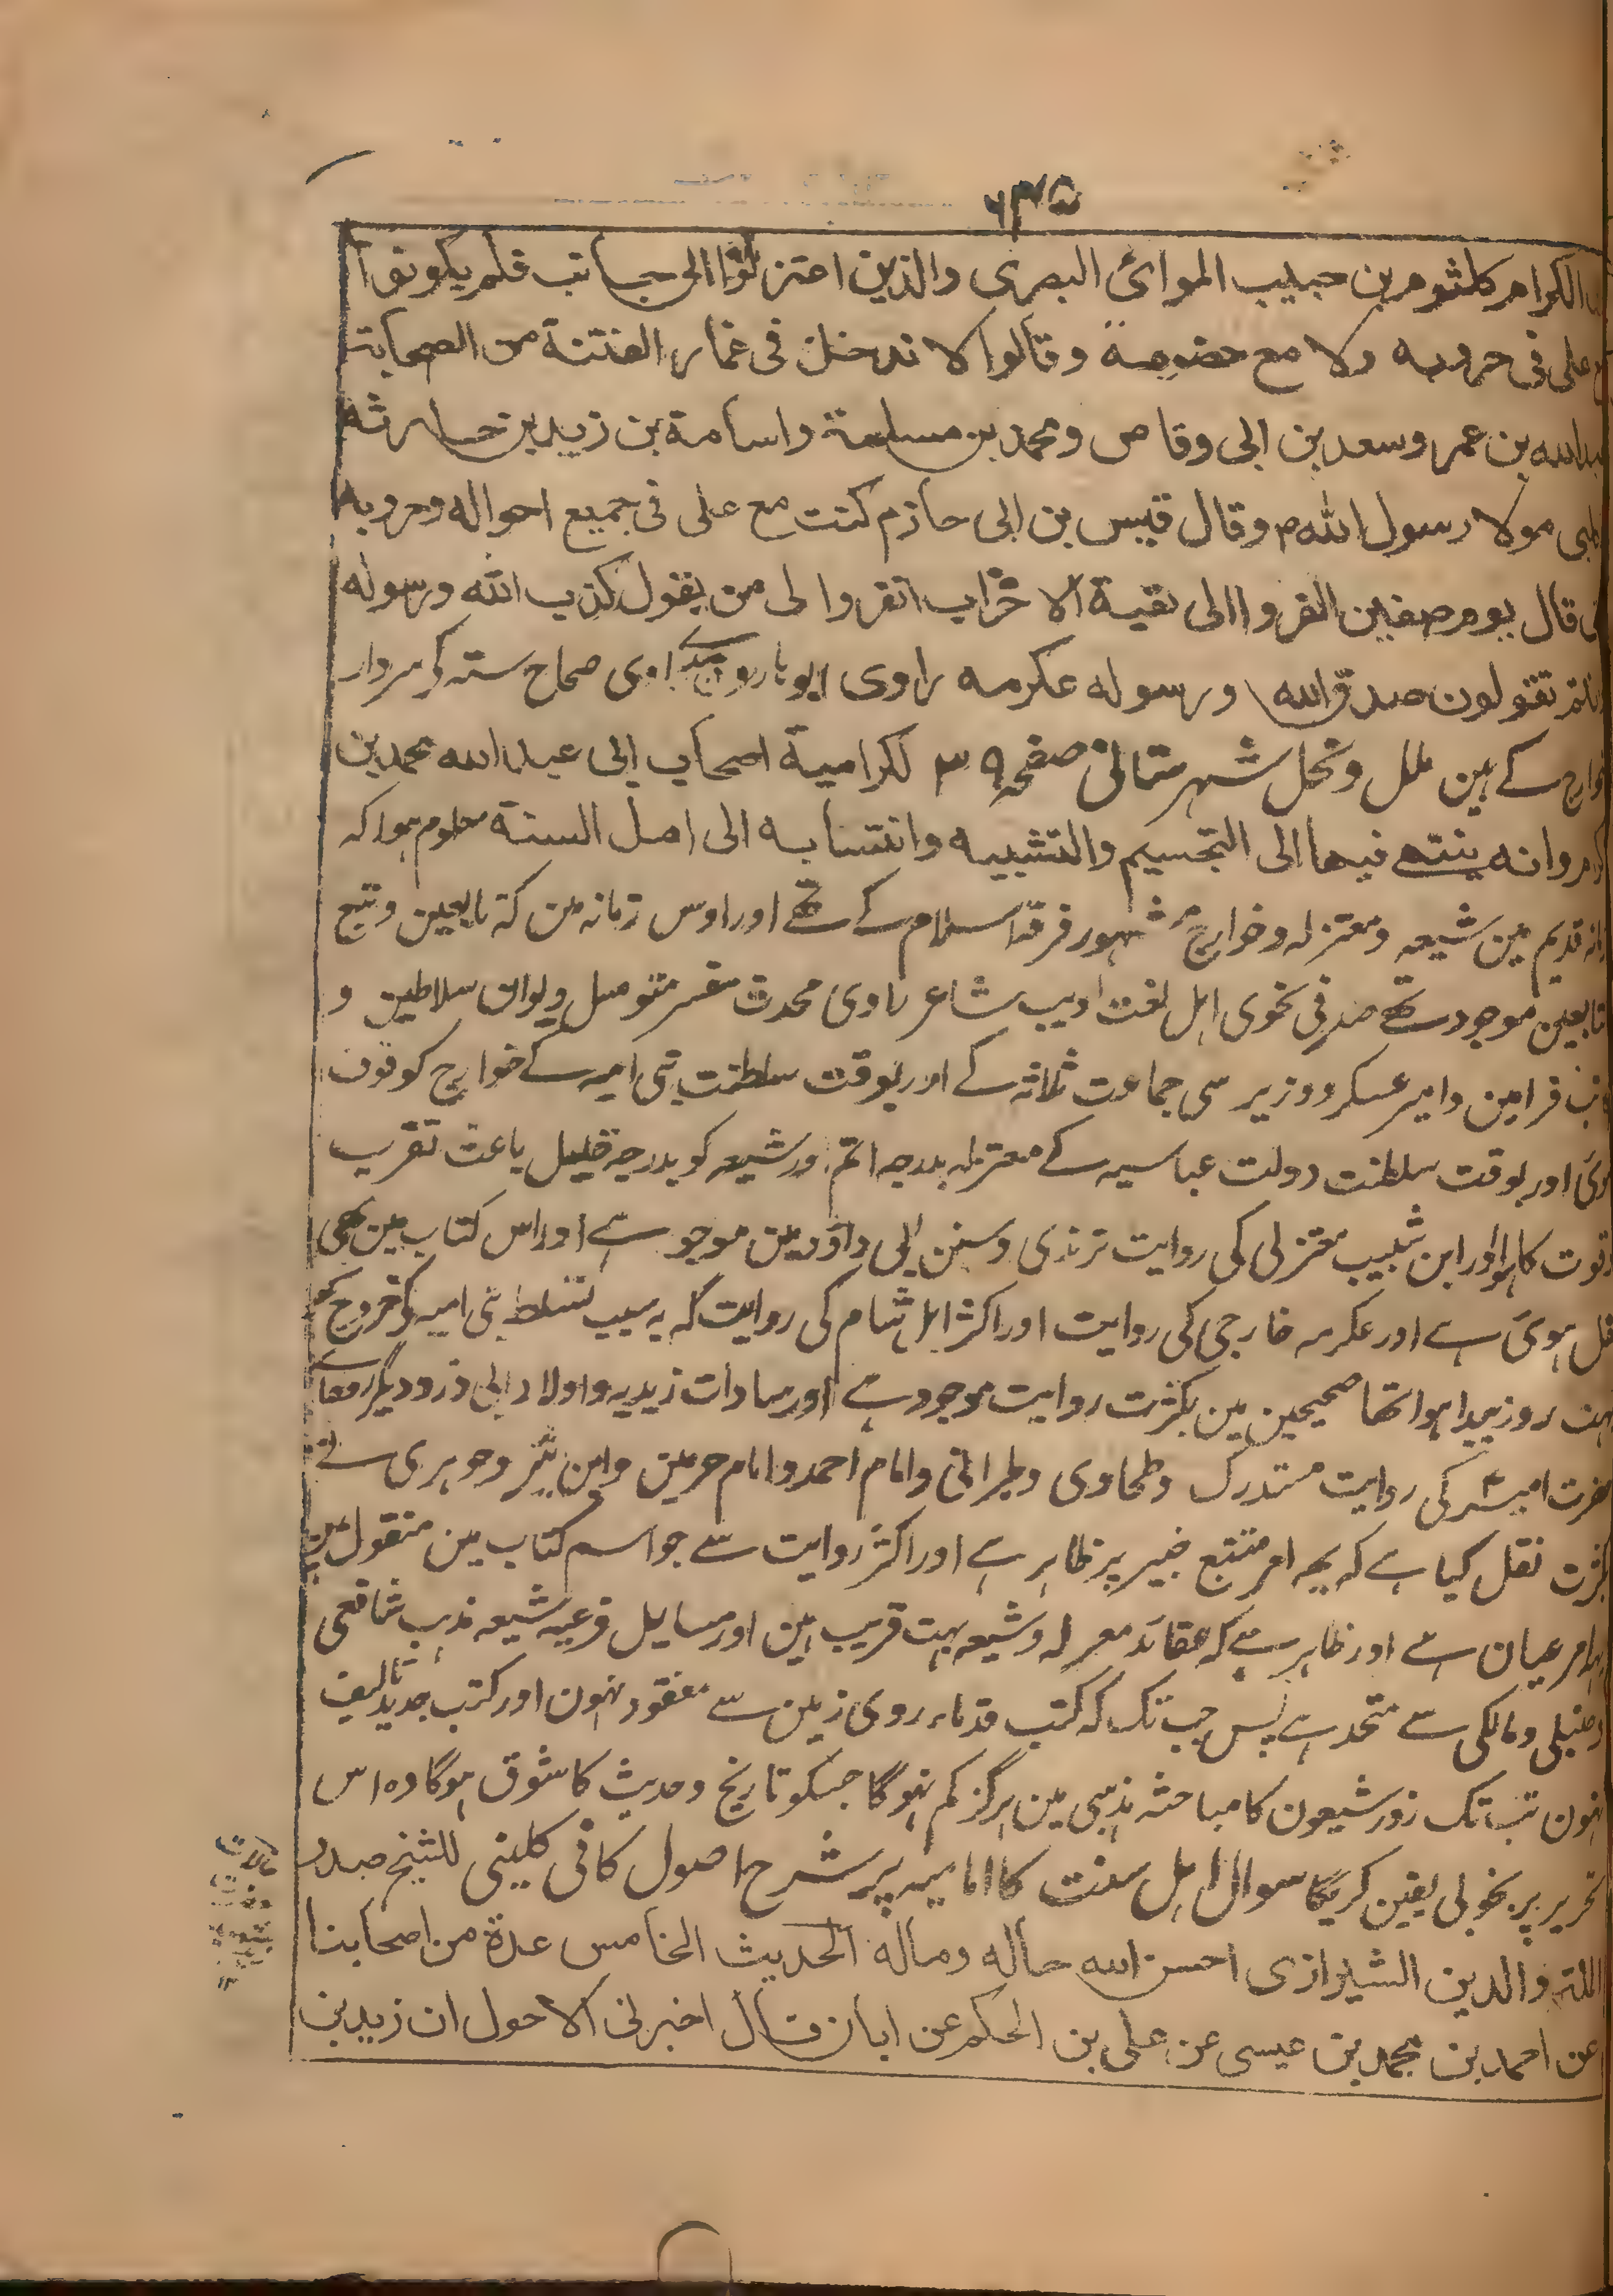 ۶۳۵
الكرام كلثوم بن حبيب البصرى والذين اعتزلوا الى جانب فلم يكونوا
على فى حروبه ولا مع خصومه وقالوا لا ندخل فى غمار الفتنة من الصحابة
عبدالله بن عمر وسعد بن ابى وقاص ومحمد بن مسلمة واسامة بن زيد بن حارثه
مولا رسول اللهم وقال قيس بن ابى حازم كنت مع على فى جميع احواله وحروبه
قال يوم صفين انفروا الى بقية الاحزاب انفروا لى من يقول كذب الله ورسوله
تقولون صدق الله ورسوله عكرمه راوى صحاح سته کے سردار
خوارج کے ہین ملل و نحل شہرستانی صفحہ ۳۹ لكرامية اصحاب ابى عبد الله محمد بن
كرام وانه ينتهى فيها الى التجسيم والتشبيه وانتسابه الى اهل السنة معلوم ہوا کہ
قدیم مین شیعہ و معتزلہ و خوارج مشہور فرقہ اسلام کے تھے اور اوس زمانہ مین کہ تابعین و تبع
تابعین موجود تھے صرفی نحوی اہل لغت ادیب شاعر راوی محدث مفسر متوسل دیوان سلاطین و
فرامین و امیر عسکر و وزیر سی جماعت ثلاثہ کے اور بوقت سلطنت بنی امیہ کے خوارج کو قوت
ہوئی اور بوقت سلطنت دولت عباسیہ کے معتزلہ بدرجہ اتم اور شیعہ کو بدرجہ قلیل باعث تقرب
و قوت کا ہوا اور ابن شبیب معتزلی کی روایت ترمذی و سنن ابی داؤد مین موجود ہے اور اس کتاب مین بھی
نقل ہوئی ہے اور عکرمہ خارجی کی روایت اور اکثر اہل شام کی روایت کہ بہ سبب تسلط بنی امیہ کے خروج کو
روز پیدا ہوا تھا صحیحین مین بکثرت روایت موجود ہے اور سادات زیدیہ و اولاد ابی ذر و دیگر رفقاے
حضرت امیر کی روایت مستدرک و طحاوی و طبرانی و امام احمد و امام حرمین و ابن اثیر و جوہری نے
بکثرت نقل کیا ہے کہ یہ امر متتبع خبیر پر ظاہر ہے اور اکثر روایت سے جو اس کتاب مین منقول ہین
یہ امر عیان ہے اور ظاہر ہے کہ عقائد معتزلہ و شیعہ بہت قریب ہین اور مسایل فرعیہ شیعہ مذہب شافعی
و حنبلی و مالکی سے متحد ہے پس جب تک کہ کتب قدماء روی زمین سے مفقود نہون اور کتب جدید تالیف
نہون تب تک زور شیعون کا مباحثہ مذہبی مین ہرگز کم نہوگا جسکو تاریخ و حدیث کا شوق ہوگا وہ اس
تحریر پر بخوبی یقین کریگا سوال اہل سنت کا امامیہ پر شرح اصول کافی کلینی للشیخ صدر
الملة والدين الشيرازى احسن الله حاله وماله الحديث الخامس عدة من اصحابنا
عن احمد بن محمد بن عيسى عن على بن الحكم عن ابان قال اخبرنى الاحول ان زيد بن